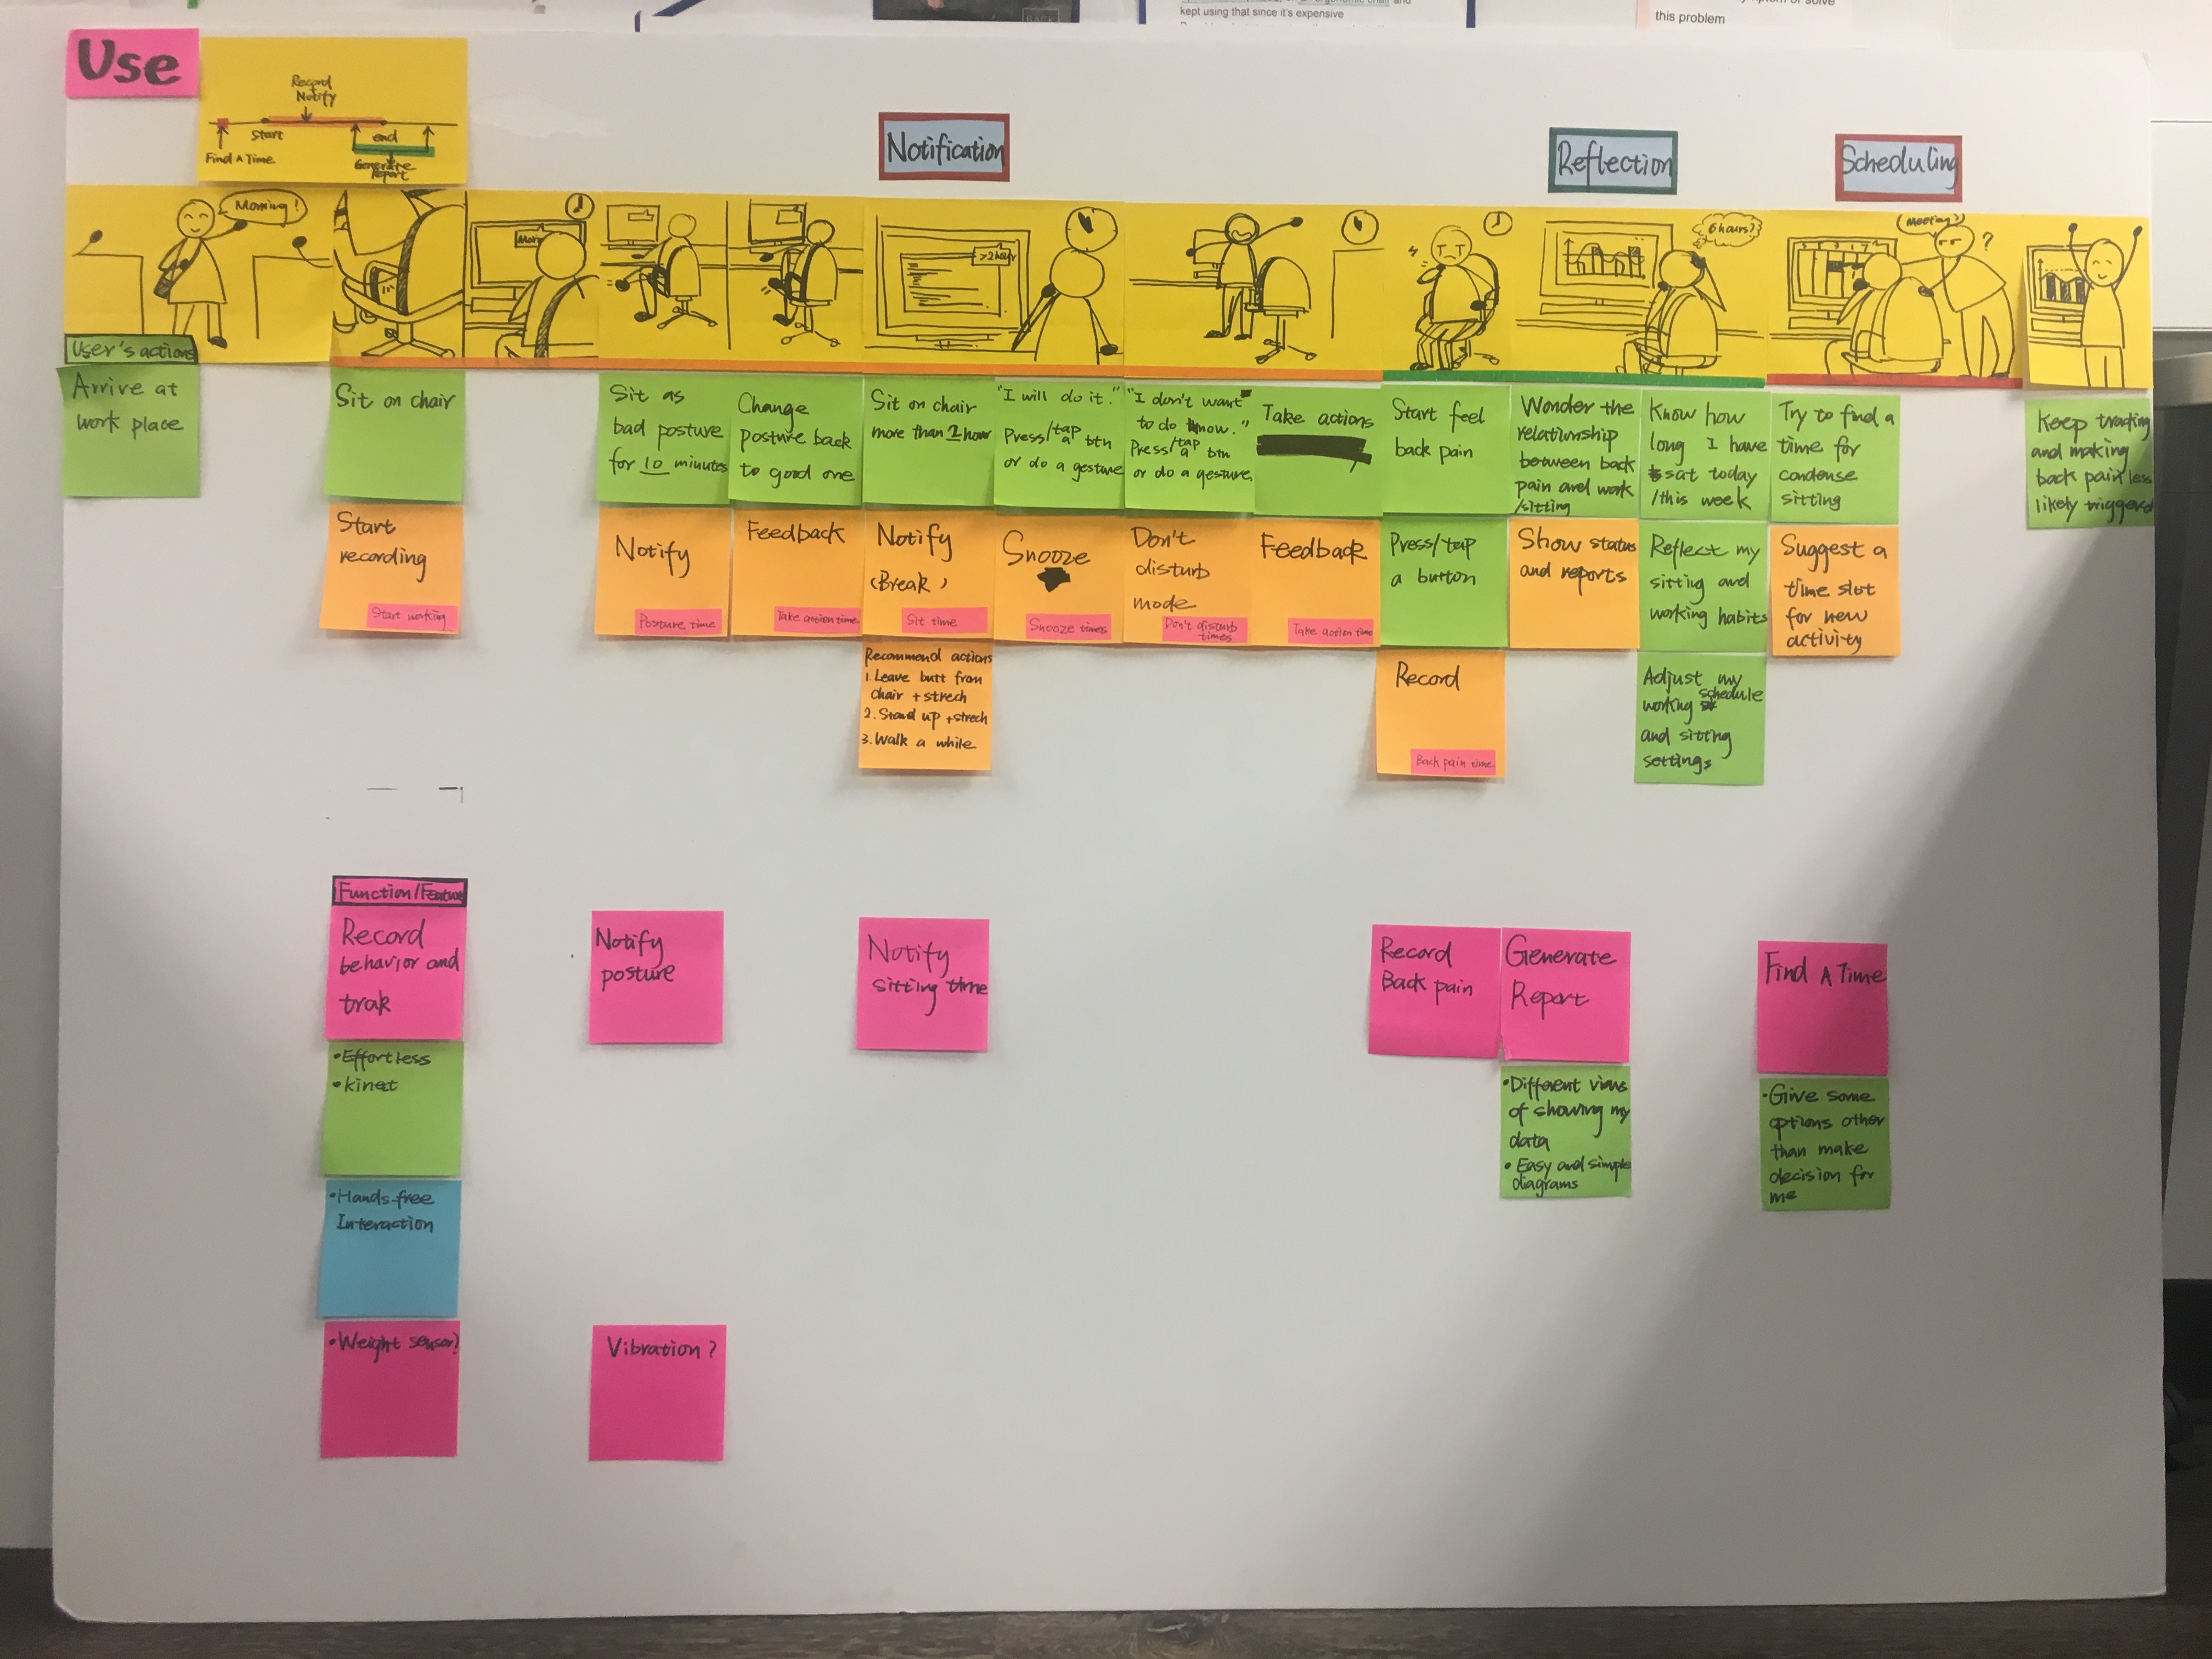 kept using that since it's expensive
this problem
BACK
Use
Record
Notify
start
end
Find A Time
Generate
Report
Notification
Reflection
Scheduling
Morning!
>2hour
6 hours?
(Meeting?)
?
User's actions
Arrive at
work place
Sit on chair
Sit as
bad posture
for 10 minutes
Change
posture back
to good one
Sit on chair
more than 2 hour
"I will do it."
Press/tap
a btn
or do a gesture
"I don't want
to do know."
Press/tap
a btn
or do a gesture
Take actions
Start feel
back pain
Wonder the
relationship
between back
pain and work
/sitting
Know how
long I have
sat today
/this week
Try to find a
time for
condense
sitting
Keep tracking
and making
back pain less
likely triggered
Start
recording
Start working
Notify
Posture time
Feedback
Take action time
Notify
(Break)
Sit time
Snooze
Snooze times
Don't
disturb
mode
Don't disturb
times
Feedback
Take action time
Press/tap
a button
Show status
and reports
Reflect my
sitting and
working habits
Suggest a
time slot
for new
activity
Recommend actions
1. Leave butt from
chair + strech
2. Stand up + strech
3. Walk a while
Record
Back pain time
Adjust my
working schedule
and sitting
settings
Function/Feature
Record
behavior and
trak
Notify
posture
Notify
sitting time
Record
Back pain
Generate
Report
Find A Time
•Effortless
•kinet
•Different views
of showing my
data
•Easy and simple
diagrams
•Give some
options other
than make
decision for
me
•Hands-free
Interaction
•Weight sensor?
Vibration?